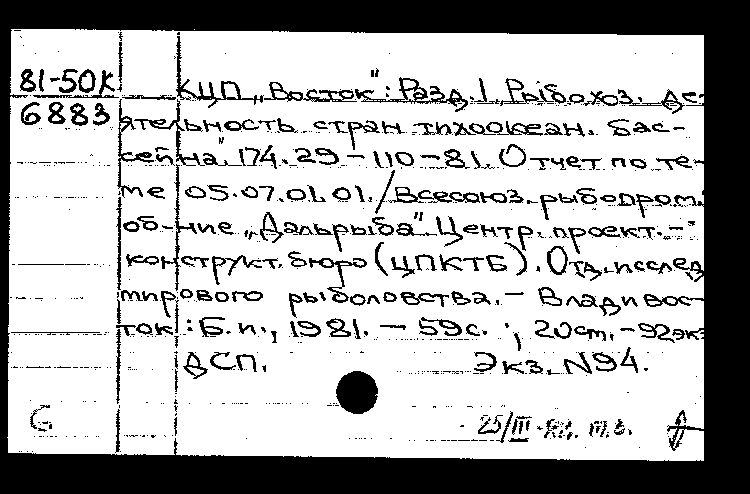 81-50К КЦП „Восток": Разд. 1 „Рыбохоз. де-
6883 ятельность стран тихоокеан. бас-
сейна". 174.29-110-81. Отчет по те-
ме 05.07.01.01. / Всесоюз. рыбопром.
об-ние „Дальрыба" Центр. проект.-
конструкт. бюро (ЦПКТБ). Отд. исслед.
мирового рыболовства. - Владивос-
ток: Б.и., 1981. - 59с.; 20см. - 92экз
ДСП. Экз. N94.
25/III